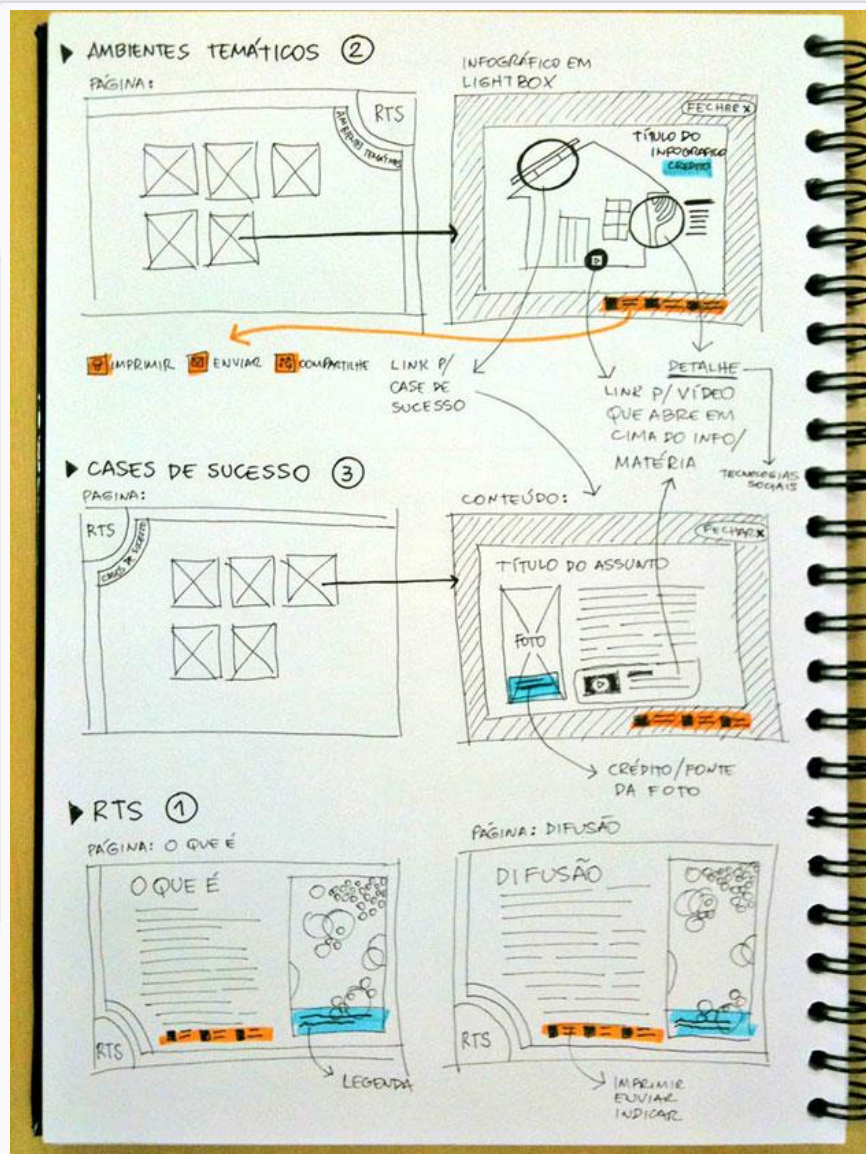 AMBIENTES TEMÁTICOS 2
PÁGINA:
RTS
AMBIENTES TEMÁTICOS
INFOGRÁFICO EM
LIGHTBOX
FECHAR X
TÍTULO DO
INFOGRÁFICO
CRÉDITO
IMPRIMIR ENVIAR COMPARTILHE
LINK P/
CASE DE
SUCESSO
LINK P/ VÍDEO
QUE ABRE EM
CIMA DO INFO/
MATÉRIA
DETALHE
TECNOLOGIAS
SOCIAIS
CASES DE SUCESSO 3
PAGINA:
RTS
CASES DE SUCESSO
CONTEÚDO:
FECHAR X
TÍTULO DO ASSUNTO
FOTO
CRÉDITO/FONTE
DA FOTO
RTS 1
PÁGINA: O QUE É
O QUE É
RTS
LEGENDA
PÁGINA: DIFUSÃO
DIFUSÃO
RTS
IMPRIMIR
ENVIAR
INDICAR